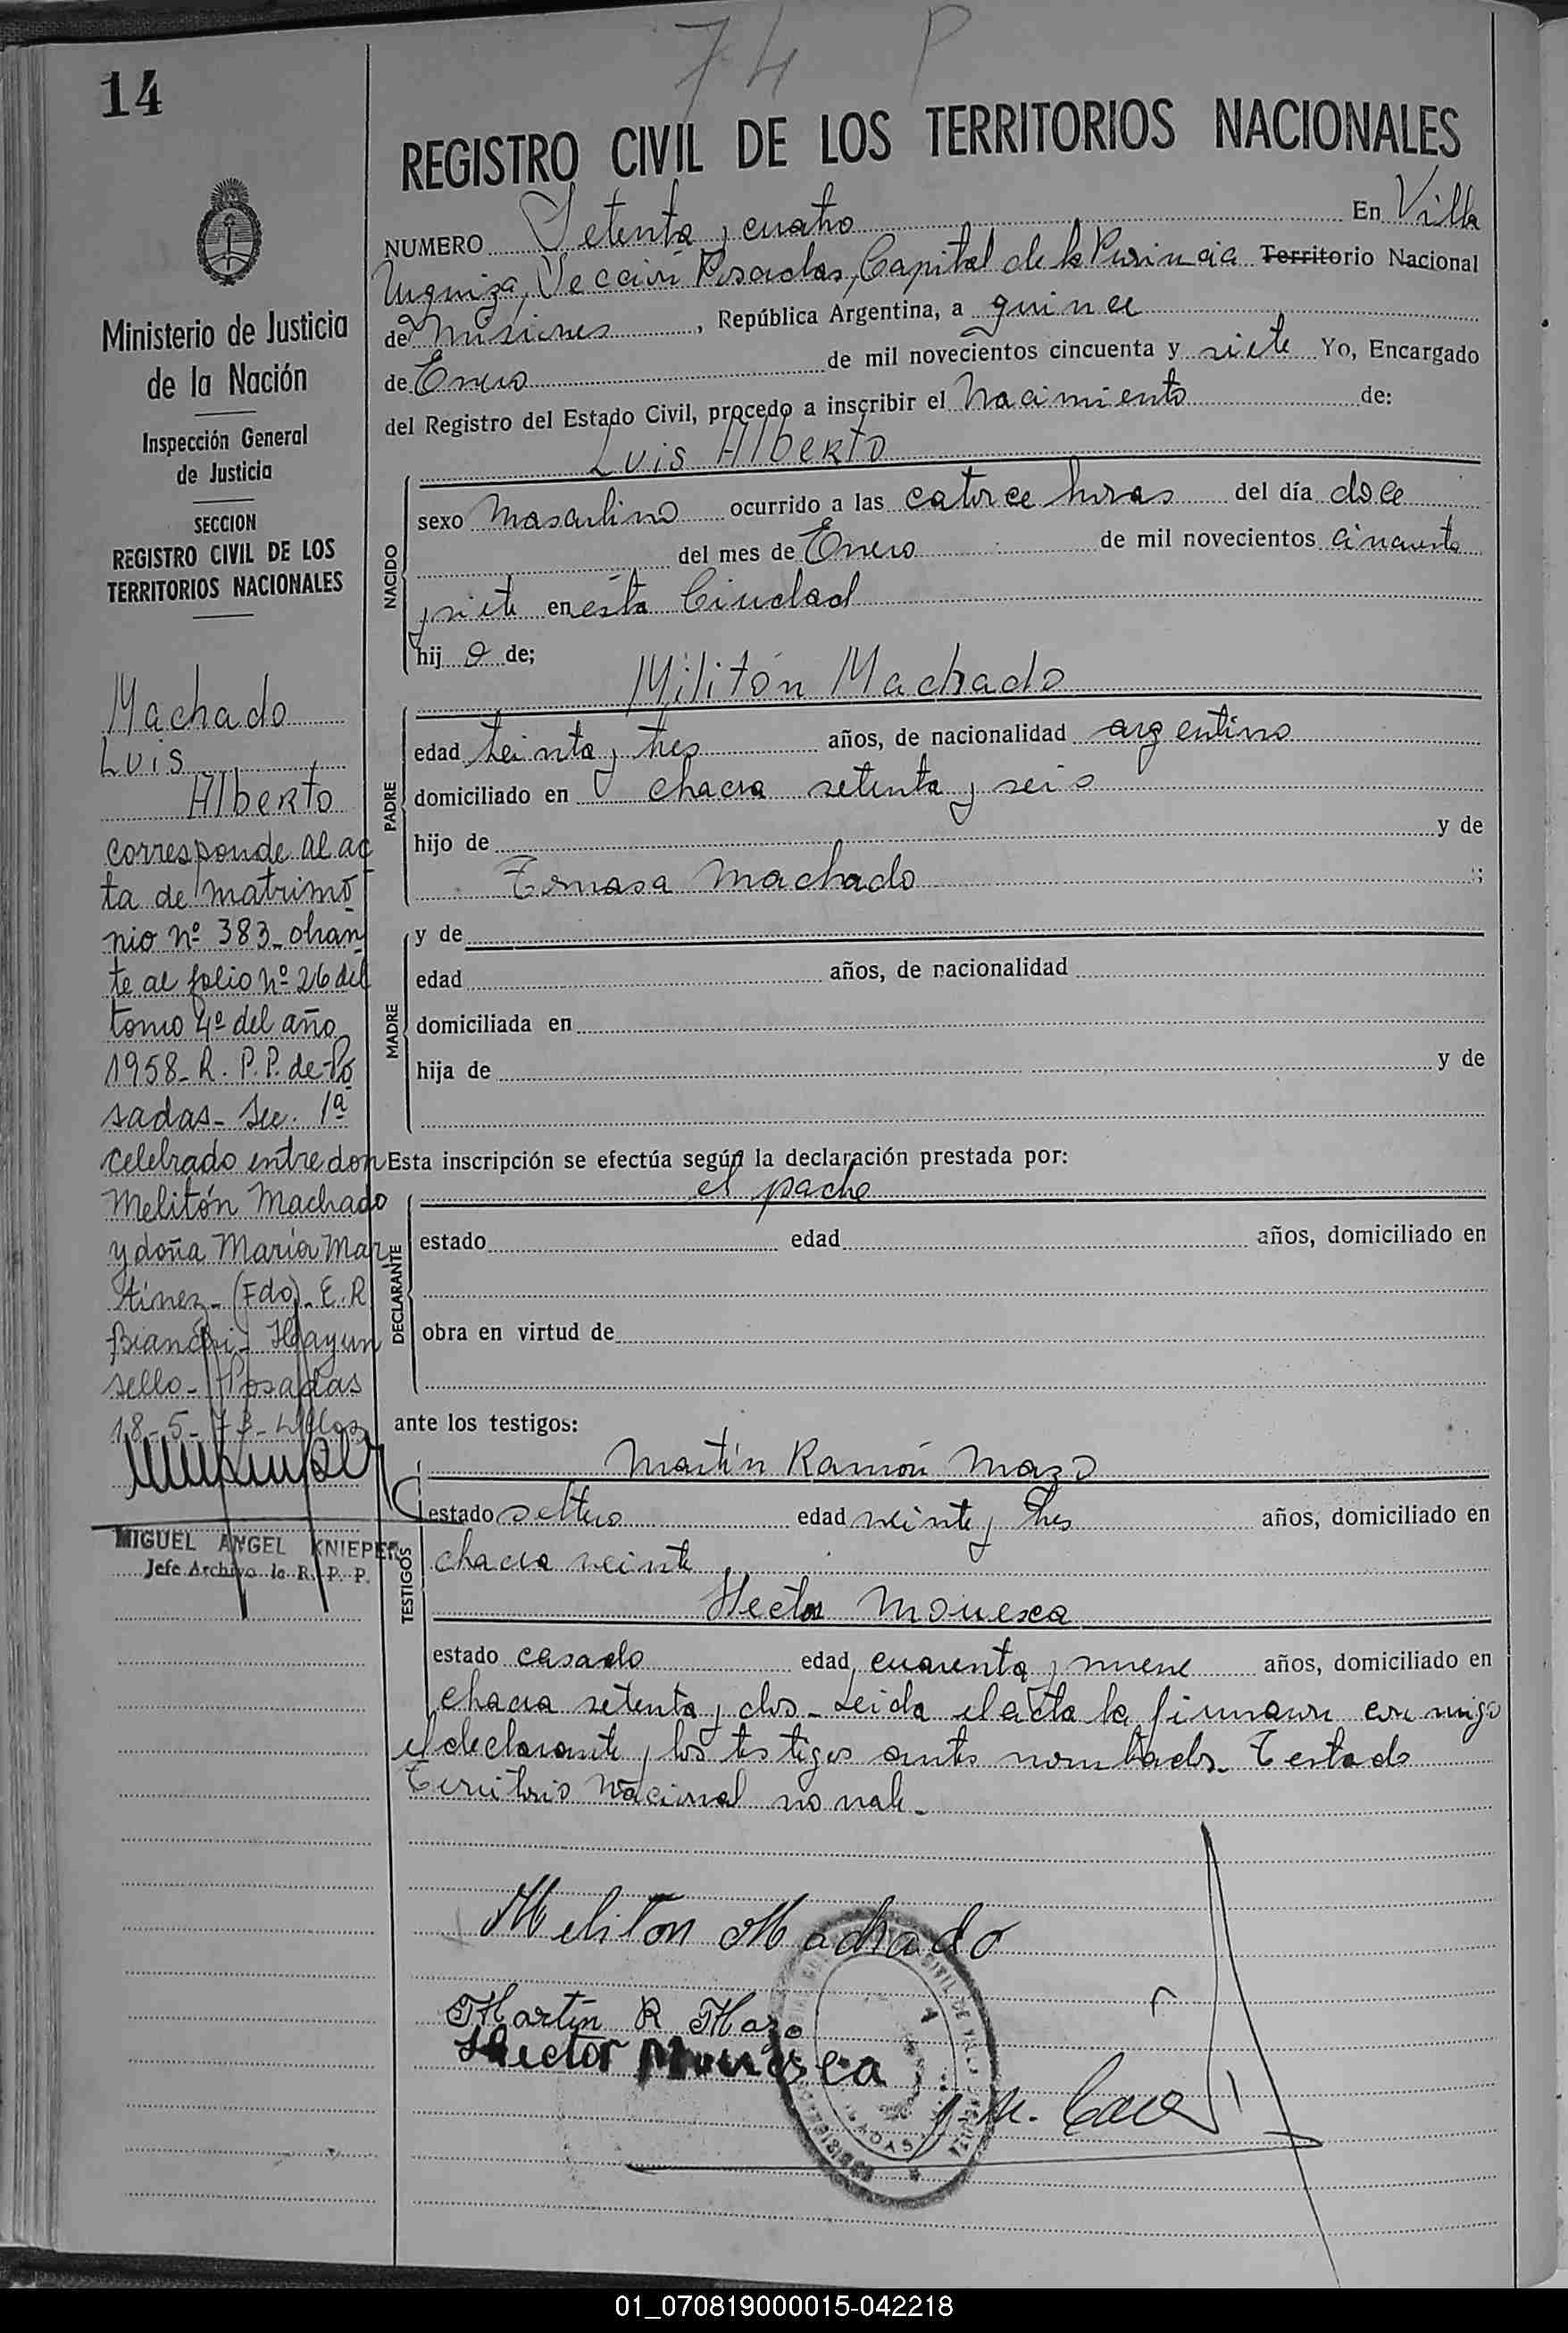 74 P
14
REGISTRO CIVIL DE LOS TERRITORIOS NACIONALES
NUMERO Setenta y cuatro En Villa
Urquiza, Sección Posadas, Capital de la Provincia Territorio Nacional
de Misiones, República Argentina, a quince
de Enero de mil novecientos cincuenta y siete Yo, Encargado
del Registro del Estado Civil, procedo a inscribir el Nacimiento de:
Luis Alberto
NACIDO
sexo Masculino ocurrido a las catorce horas del día doce
del mes de Enero de mil novecientos cincuenta
y siete en ésta Ciudad
hijo de;
Militón Machado
PADRE
edad treinta y tres años, de nacionalidad argentino
domiciliado en chacra setenta y seis
hijo de y de
Tomasa Machado ;
MADRE
y de
edad años, de nacionalidad
domiciliada en
hija de y de
Esta inscripción se efectúa según la declaración prestada por:
el padre
DECLARANTE
estado edad años, domiciliado en
obra en virtud de
ante los testigos:
Martín Ramón Mazo
TESTIGOS
estado soltero edad veinte y tres años, domiciliado en
chacra veinte
Hector
estado casado edad cuarenta y nueve años, domiciliado en
chacra setenta y dos - Leida el acta la firmaron conmigo
el declarante y los testigos antes nombrados - Testado
Territorio Nacional no vale -
Meliton Machado
Martín R Mazo
Hector
Ministerio de Justicia
de la Nación
Inspección General
de Justicia
SECCION
REGISTRO CIVIL DE LOS
TERRITORIOS NACIONALES
Machado
Luis
Alberto
Corresponde al ac
ta de matrimo
nio nº 383 obran
te al folio nº 26 del
tomo 4º del año
1958 - R. P. P. de Po
sadas - Sec. 1ª
celebrado entre don
Melitón Machado
y doña María Mar
tínez - (Fdo) - E. R
Bianchi - Hay un
sello - Posadas
18-5-73
MIGUEL ANGEL KNIEPER
Jefe Archivo de R. P. P.
01_070819000015-042218